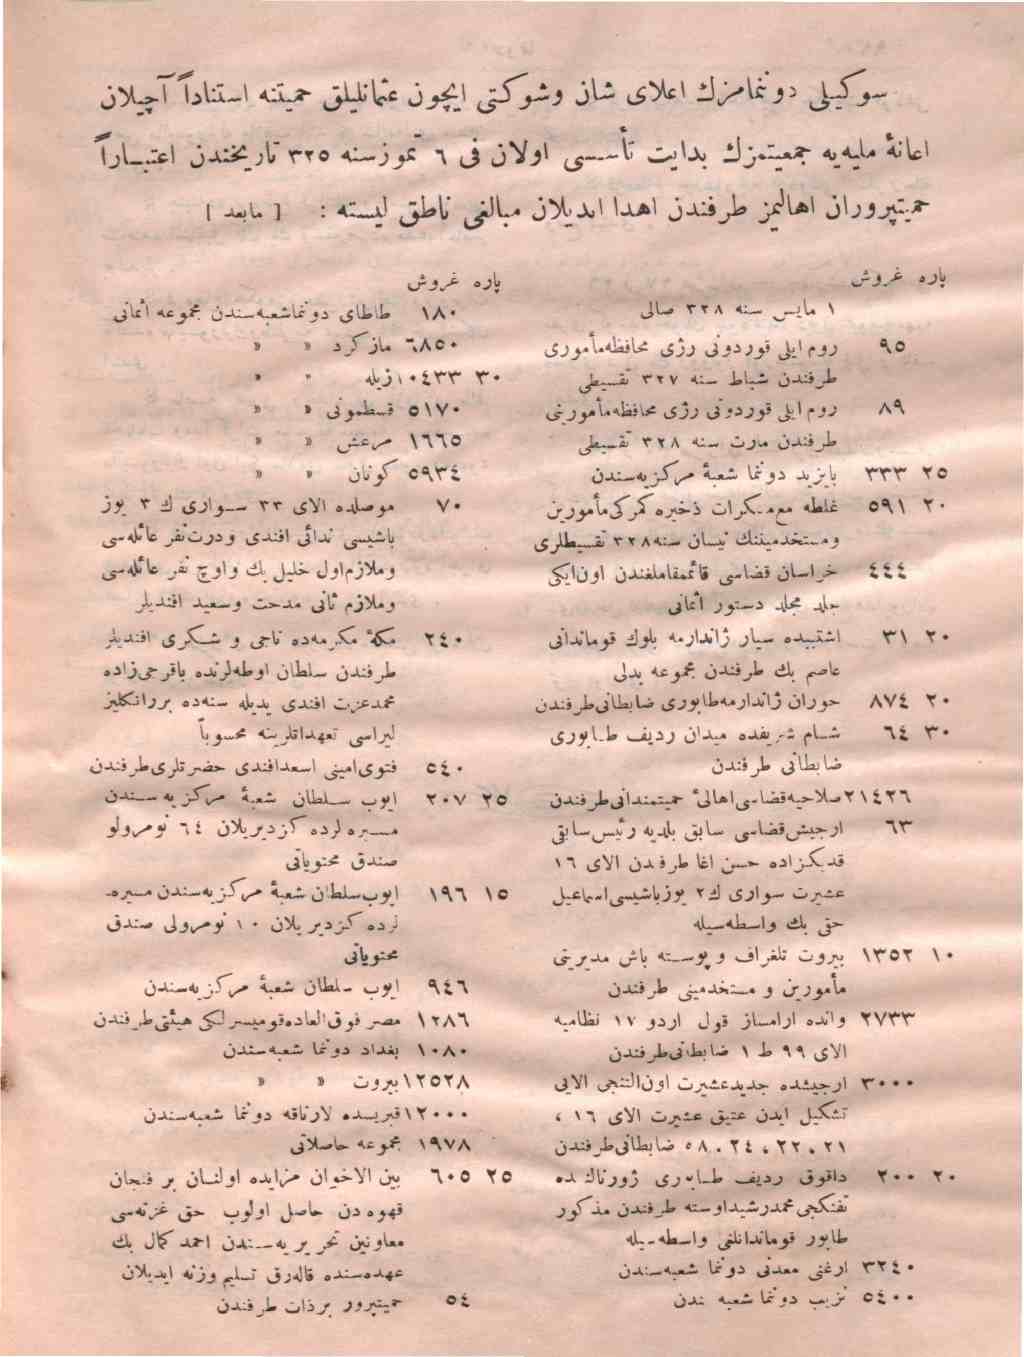 سوكيلی دوننمامزك اعلای شان وشوكتی ایچون عثمانلیلق حمیتنه استناداً آچیلان
اعانهٔ ملیه‌یه جمعیتمزك بدایت تأسسی اولان فی ٦ تموز سنه ٣٢٥ تاریخندن اعتباراً
حمیتپروران اهالیمز طرفندن اهدا ایدیلان مبالغی ناطق لیسته : [ مابعد ]
پاره غروش
١ مایس سنه ٣٢٨ صالی
٩٥ روم ایلی قوردونی رژی محافظه‌مأموری
طرفندن شباط سنه ٣٢٧ تقسیطی
٨٩ روم ایلی قوردونی رژی محافظه‌مأمورینی
طرفندن مارت سنه ٣٢٨ تقسیطی
٢٥ ٣٣٣ بایزید دوننما شعبهٔ مركزیه‌سندن
٢٠ ٥٩١ غلطه مع‌مسكرات ذخیره كمركی‌مأمورین
ومستخدمیننك نیسان سنه٣٢٨ تقسیطلری
٤٤٤ خراسان قضاسی قائممقاملغندن اون‌ایكی
جلد مجلد دستور اثمانی
٢٠ ٣١ اشتیبده سیار ژاندارمه بلوك قوماندانی
عاصم بك طرفندن مجموعه بدلی
٢٠ ٨٧٤ حوران ژاندارمه‌طابوری ضابطانی‌طرفندن
٣٠ ٦٤ شام شریفده میدان ردیف طابوری
ضابطانی طرفندن
٢١٤٢٦ صلاحیه‌قضاسی‌اهالیٔ حمیتمندانی‌طرفندن
٦٣ ارجیش‌قضاسی سابق بلدیه رئیس‌سابقی
قدبكزاده حسن اغا طرفندن الای ١٦
عشیرت سواری ك٢ یوزباشیسی‌اسماعیل
حقی بك واسطه‌سیله
١٠ ١٣٥٢ بیروت تلغراف و پوسته باش مدیریتی
مأمورین و مستخدمینی طرفندن
٢٧٣٣ وانده ارامساز قول اردو ١٧ نظامیه
الای ٩٩ ط ١ ضابطانی‌طرفندن
٣٠٠٠ ارجیشده جدیدعشیرت اون‌التنجی الایی
تشكیل ایدن عتیق عشیرت الای ١٦ ،
٢١ ، ٢٢ ، ٢٤ ، ٥٨ ضابطانی‌طرفندن
٢٠ ٢٠٠ داقوق ردیف طابوری ژورناك ده
تفنكجی‌محمدرشیداوسته طرفندن مذكور
طابور قوماندانلغی واسطه‌سیله
٣٢٤٠ ارغنی معدنی دوننما شعبه‌سندن
٥٤٠٠ نزیب دوننما شعبه سندن
پاره غروش
١٨٠ طاطای دوننماشعبه‌سندن مجموعه اثمانی
٦٨٥٠ مازكرد » »
٣٠ ١٠٤٣٣ زیله » »
٥١٧٠ قسطمونی » »
١٦٦٥ مرعش » »
٥٩٣٤ كونان » »
٧٠ موصلده الای ٣٣ سواری ك ٣ یوز
باشیسی ندائی افندی ودرت‌نفر عائله‌سی
وملازم‌اول خلیل بك واوچ نفر عائله‌سی
وملازم ثانی مدحت وسعید افندیلر
٢٤٠ مكهٔ مكرمه‌ده ناجی و شكری افندیلر
طرفندن سلطان اوطه‌لرنده باقرجی‌زاده
محمدعزت افندی یدیله سنه‌ده بررانكلیز
لیراسی تعهداتلرینه محسوباً
٥٤٠ فتوی‌امینی اسعدافندی حضرتلری‌طرفندن
٢٥ ٢٠٧ ایوب سلطان شعبهٔ مركزیه سندن
مسیره لرده كزدیریلان ٦٤ نومرولو
صندق محتویاتی
١٥ ١٩٦ ایوب‌سلطان شعبهٔ مركزیه‌سندن مسیره‌
لرده كزدیریلان ١٠ نومرولی صندق
محتویاتی
٩٤٦ ایوب سلطان شعبهٔ مركزیه‌سندن
١٢٨٦ مصر فوق‌العاده‌قومیسرلكی هیئتی‌طرفندن
١٠٨٠ بغداد دوننما شعبه‌سندن
١٢٥٢٨ بیروت » »
١٢٠٠٠ قبریسده لارناقه دوننما شعبه‌سندن
١٩٧٨ مجموعه حاصلاتی
٢٥ ٦٠٥ بین الاخوان مزایده اولنان بر فنجان
قهوه دن حاصل اولوب حق غزته‌سی
معاونین تحریریه‌سندن احمد كمال بك
عهده‌سنده قاله‌رق تسلیم وزنه ایدیلان
٥٤ حمیتپرور برذات طرفندن